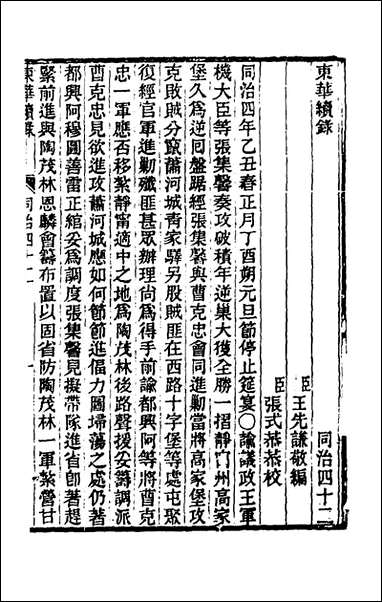 東華續錄　同治四十二
臣王先謙敬編
臣張式恭恭校
同治四年乙丑春正月丁酉朔元旦節停止筵宴○諭議政王軍
機大臣等張集馨奏攻破積年逆巢大獲全勝一摺靜寧州高家
堡久爲逆回盤踞經張集馨與曹克忠會同進勦當將高家堡攻
克敗賊分竄蕭河城靑家驛另股賊匪在西路十字堡等處屯聚
復經官軍進勦殲匪甚眾辦理尙爲得手前諭都興阿等將曹克
忠一軍應否移紮靜甯適中之地爲陶茂林後路聲援妥籌調派
茲曹克忠見欲進攻蕭河城應如何節節進偪力圖埽蕩之處仍著
都興阿穆圖善雷正綰妥爲調度張集馨見擬帶隊進省卽著趕
緊前進與陶茂林恩麟會籌布置以固省防陶茂林一軍紮營甘
東華續錄　同治四十二　一